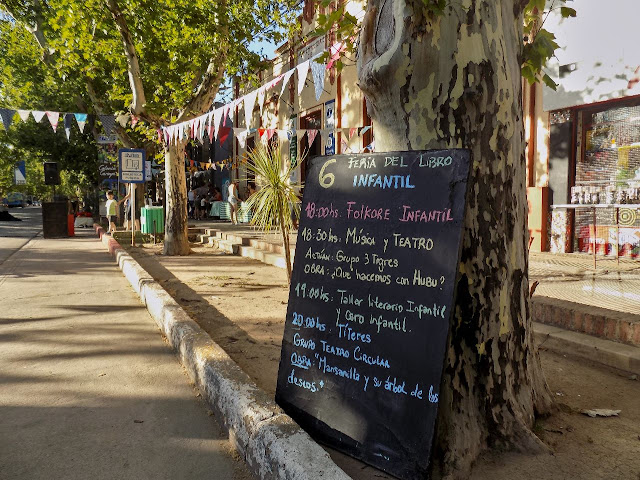 6 FERIA DEL LIBRO
INFANTIL
18:00hs. FOLKORE INFANTIL
18:30hs. MÚSICA y TEATRO
ACTÚAN: GRUPO 3 TIGRES
OBRA: ¿QUÉ HACEMOS CON HUBU?
19:00hs: TALLER LITERARIO INFANTIL
y CORO INFANTIL.
20:00hs: TÍTERES
GRUPO TEATRO CIRCULAR
OBRA: "MANSANILLA y SU ÁRBOL DE LOS
DESEOS."